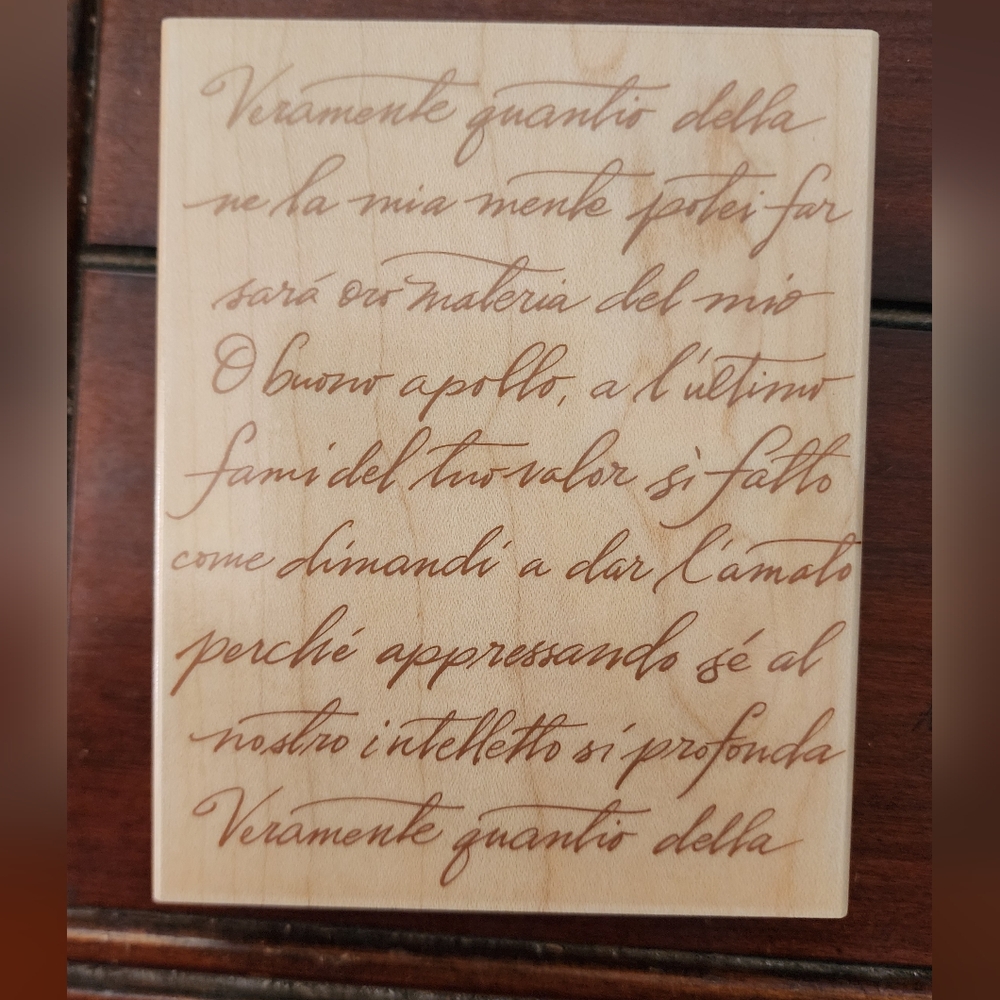 Veramente quantio della
ne la mia mente potei far
sará oro materia del mio
O buono apollo, a l'ultimo
fami del tuo valor sì fatto
come dimandi a dar l'amato
perché appressando sé al
nostro intelletto sí profonda
Veramente quantio della